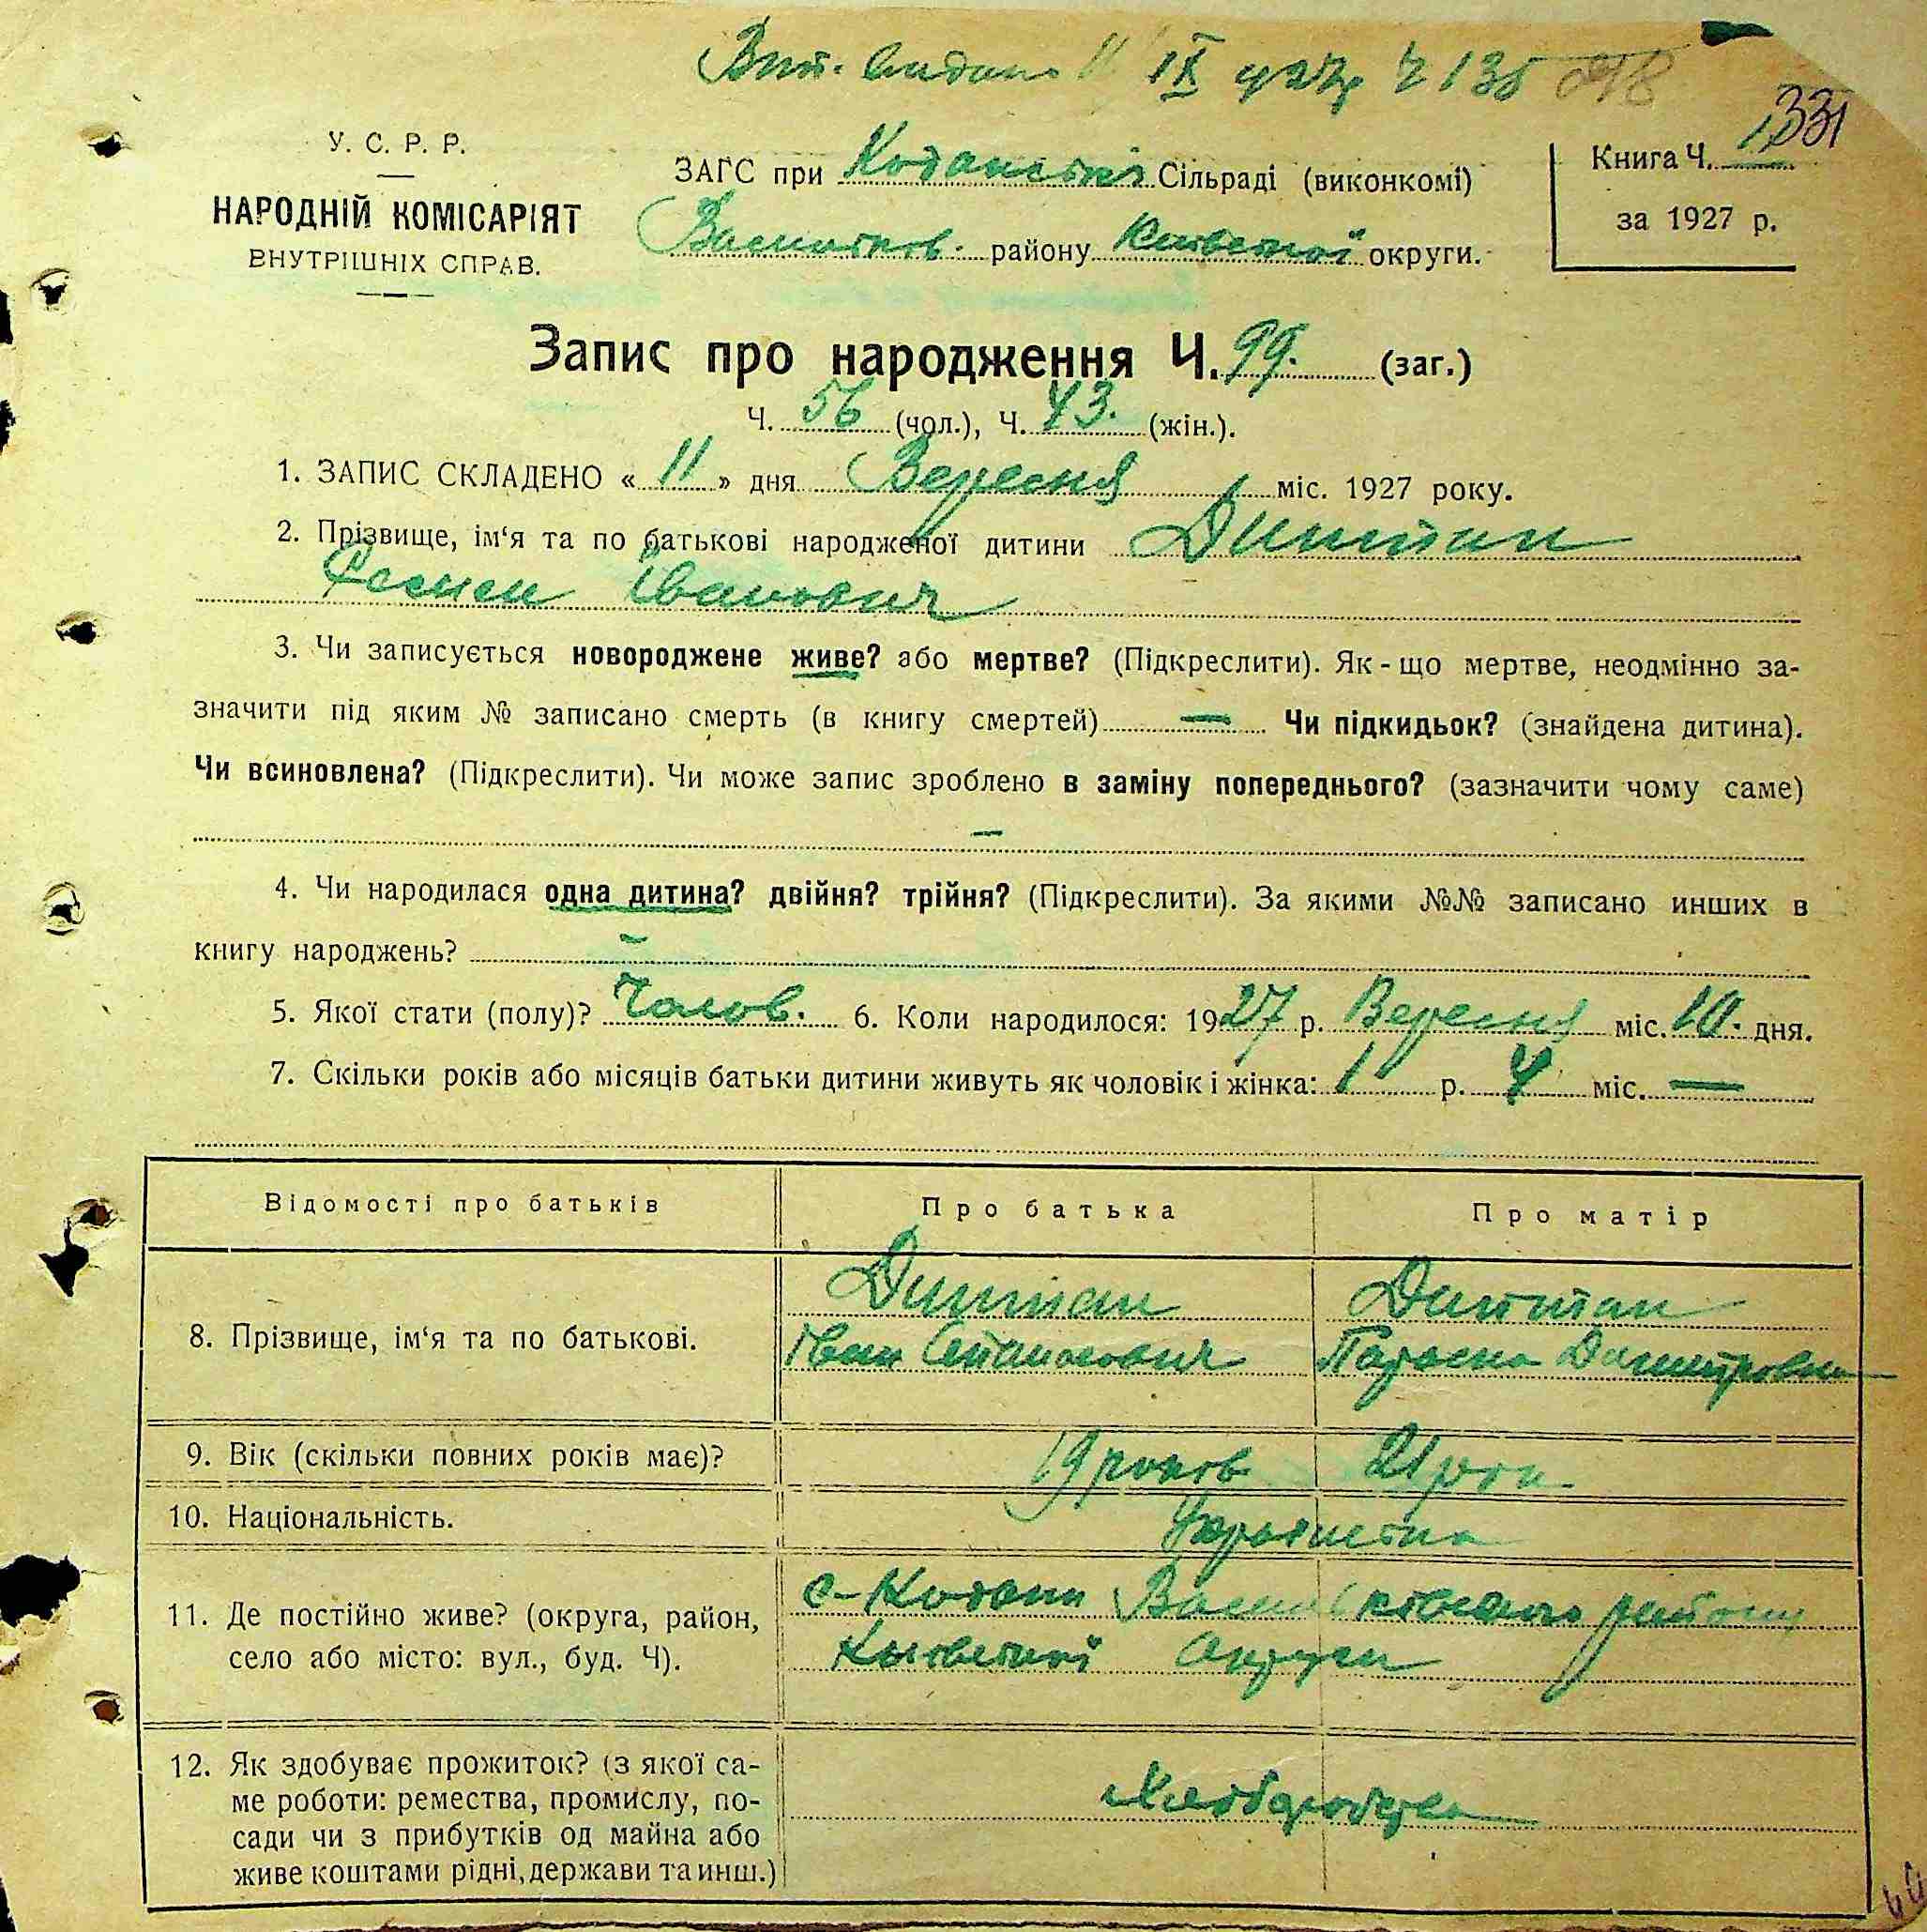 Вип. видано 11/IX 1927р Ч 135
331
У. С. Р. Р.
НАРОДНІЙ КОМІСАРІЯТ
ВНУТРІШНІХ СПРАВ.
ЗАГС при Коданські Сільраді (виконкомі)
Васильков. району Київської округи.
Книга Ч.
за 1927 р.
Запис про народження Ч. 99. (заг.)
Ч. 56 (чол.), Ч. 43. (жін.).
1. ЗАПИС СКЛАДЕНО « 11 » дня Вересня міс. 1927 року.
2. Прізвище, ім‘я та по батькові народженої дитини Дитман
Семен Іванович
3. Чи записується новороджене живе? або мертве? (Підкреслити). Як-що мертве, неодмінно за-
значити під яким № записано смерть (в книгу смертей) — Чи підкидьок? (знайдена дитина).
Чи всиновлена? (Підкреслити). Чи може запис зроблено в заміну попереднього? (зазначити чому саме)
—
4. Чи народилася одна дитина? двійня? трійня? (Підкреслити). За якими №№ записано инших в
книгу народжень? —
5. Якої стати (полу)? Чолов. 6. Коли народилося: 1927 р. Вересня міс. 10. дня.
7. Скільки років або місяців батьки дитини живуть як чоловік і жінка: 1 р. 4 міс. —
Відомості про батьків Про батька Про матір
8. Прізвище, ім‘я та по батькові.
Дитман Дитман
Іван Степанович Параска Дмитровна
9. Вік (скільки повних років має)? 19 років 21 рок
10. Національність. Українська
11. Де постійно живе? (округа, район,
село або місто: вул., буд. Ч).
с- Кодаки Васильківського району
Київської Округи
12. Як здобуває прожиток? (з якої са-
ме роботи: ремества, промислу, по-
сади чи з прибутків од майна або
живе коштами рідні, держави та инш.)
Хлеборобства